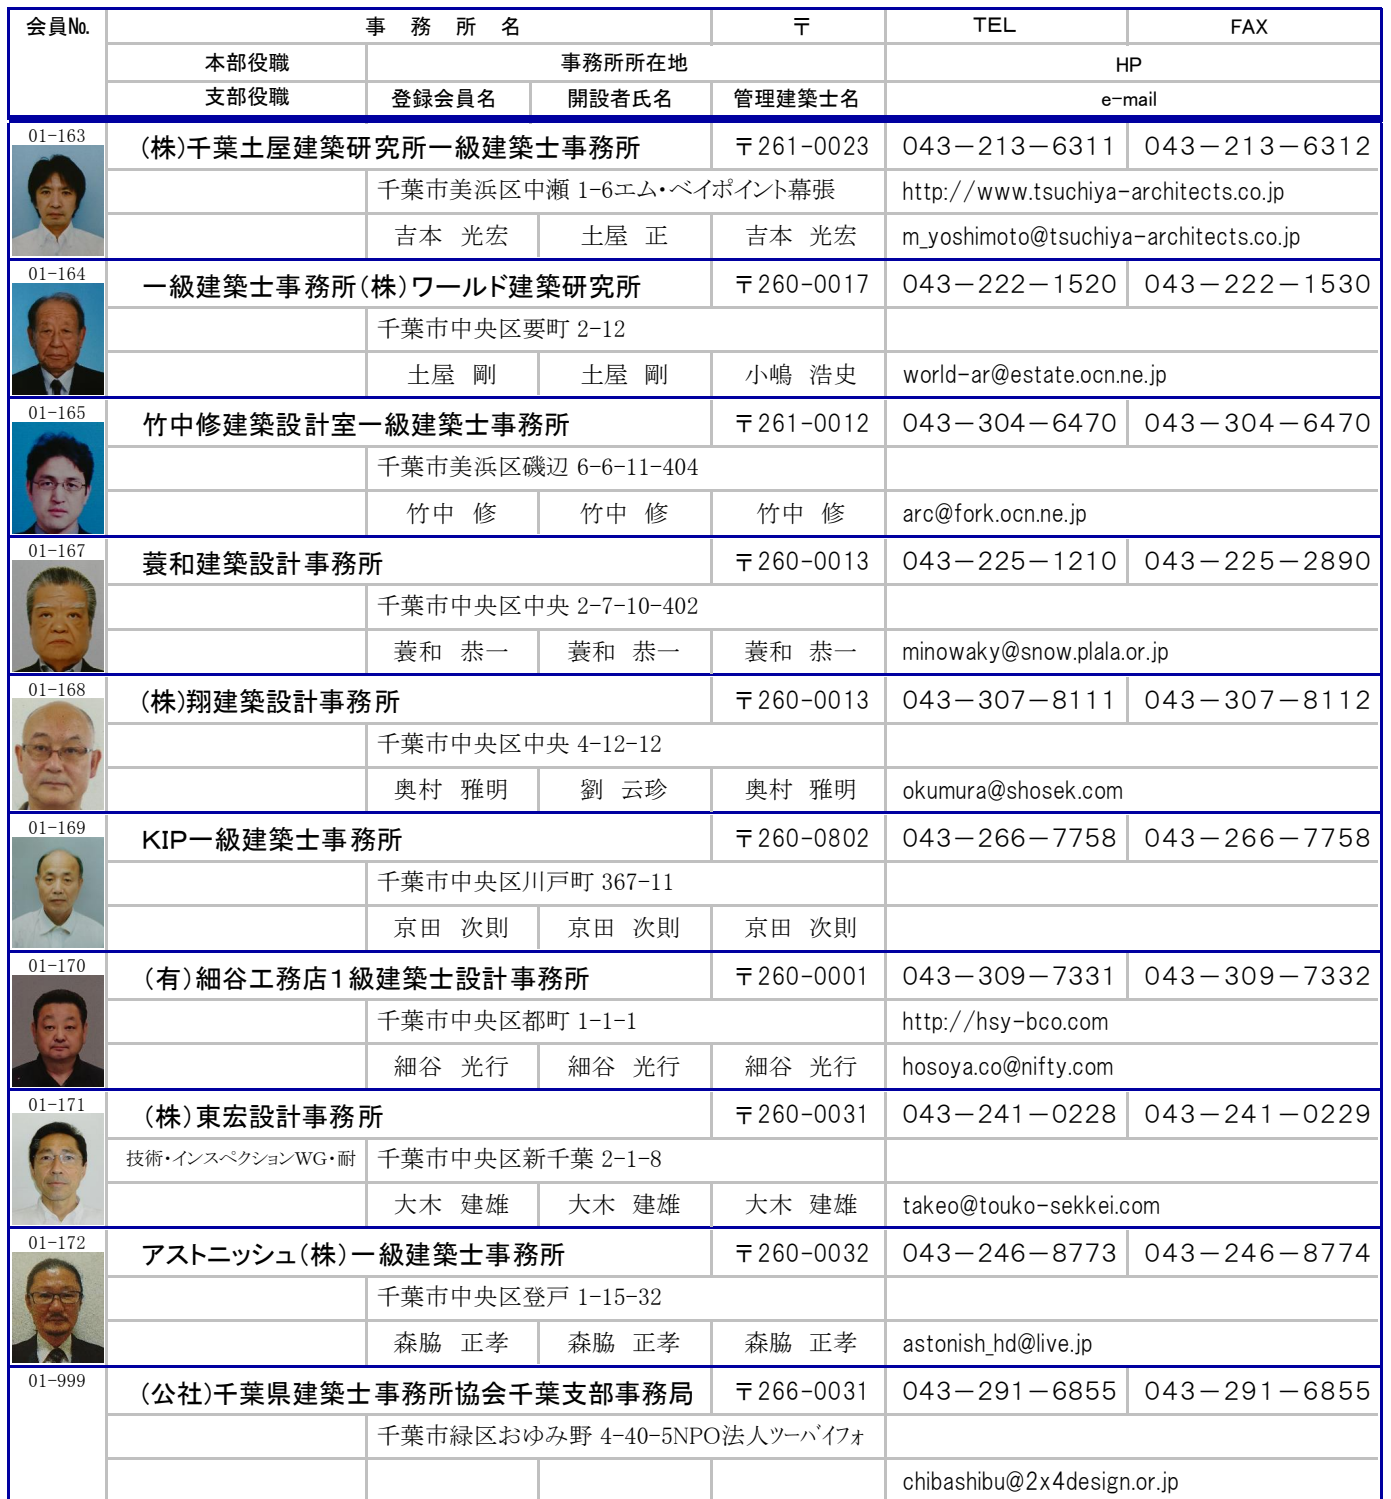 会員№ 事 務 所 名 〒 TEL FAX
本部役職 事務所所在地 HP
支部役職 登録会員名 開設者氏名 管理建築士名 e-mail
01-163 (株)千葉土屋建築研究所一級建築士事務所 〒261-0023 043－213－6311 043－213－6312
千葉市美浜区中瀬 1-6エム・ベイポイント幕張 http://www.tsuchiya-architects.co.jp
吉本 光宏 土屋 正 吉本 光宏 m_yoshimoto@tsuchiya-architects.co.jp
01-164 一級建築士事務所(株)ワールド建築研究所 〒260-0017 043－222－1520 043－222－1530
千葉市中央区要町 2-12
土屋 剛 土屋 剛 小嶋 浩史 world-ar@estate.ocn.ne.jp
01-165 竹中修建築設計室一級建築士事務所 〒261-0012 043－304－6470 043－304－6470
千葉市美浜区磯辺 6-6-11-404
竹中 修 竹中 修 竹中 修 arc@fork.ocn.ne.jp
01-167 蓑和建築設計事務所 〒260-0013 043－225－1210 043－225－2890
千葉市中央区中央 2-7-10-402
蓑和 恭一 蓑和 恭一 蓑和 恭一 minowaky@snow.plala.or.jp
01-168 (株)翔建築設計事務所 〒260-0013 043－307－8111 043－307－8112
千葉市中央区中央 4-12-12
奥村 雅明 劉 云珍 奥村 雅明 okumura@shosek.com
01-169 KIP一級建築士事務所 〒260-0802 043－266－7758 043－266－7758
千葉市中央区川戸町 367-11
京田 次則 京田 次則 京田 次則
01-170 (有)細谷工務店１級建築士設計事務所 〒260-0001 043－309－7331 043－309－7332
千葉市中央区都町 1-1-1 http://hsy-bco.com
細谷 光行 細谷 光行 細谷 光行 hosoya.co@nifty.com
01-171 (株)東宏設計事務所 〒260-0031 043－241－0228 043－241－0229
技術・インスペクションWG・耐 千葉市中央区新千葉 2-1-8
大木 建雄 大木 建雄 大木 建雄 takeo@touko-sekkei.com
01-172 アストニッシュ(株)一級建築士事務所 〒260-0032 043－246－8773 043－246－8774
千葉市中央区登戸 1-15-32
森脇 正孝 森脇 正孝 森脇 正孝 astonish_hd@live.jp
01-999 (公社)千葉県建築士事務所協会千葉支部事務局 〒266-0031 043－291－6855 043－291－6855
千葉市緑区おゆみ野 4-40-5NPO法人ツーバイフォ
chibashibu@2x4design.or.jp